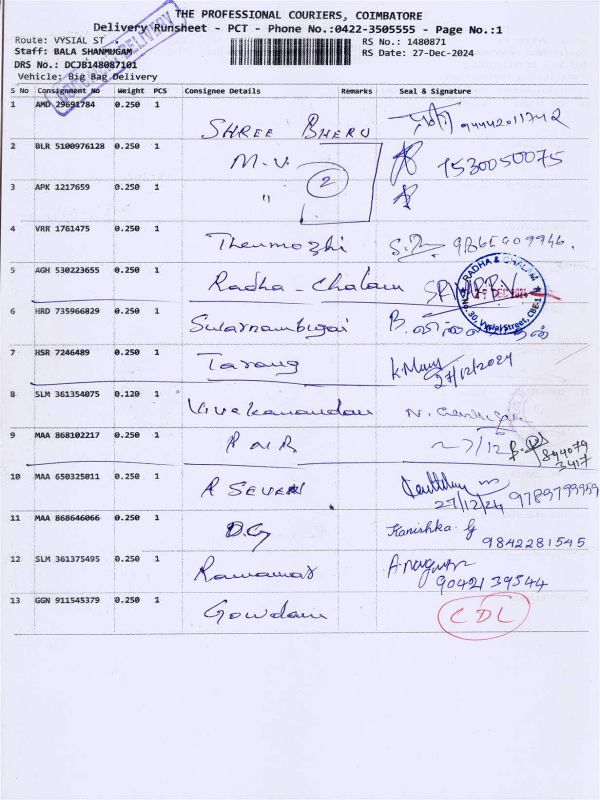 THE PROFESSIONAL COURIERS, COIMBATORE
Delivery Runsheet - PCT - Phone No.:0422-3505555 - Page No.:1
Route: VYSIAL ST .
RS No.: 1480871
Staff: BALA SHANMUGAM
RS Date: 27-Dec-2024
DRS No.: DCJB148087101
Vehicle: Big Bag Delivery
S No Consignment No Weight PCS Consignee Details Remarks Seal & Signature
1 AMD 29691784 0.250 1 SHREE BHERU
2 BLR 5100976128 0.250 1 M.V. 2 7530050075
3 APK 1217659 0.250 1 "
4 VRR 1761475 0.250 1 Thenmozhi
5 AGH 530223655 0.250 1 Radha - Chalam
RADHA & CHALAM
DEC 2024
No.30, Vysial Street, CBE-1
6 HRD 735966829 0.250 1 Swarnambigai B.
7 HSR 7246489 0.250 1 Tarang 27/12/2024
8 SLM 361354075 0.120 1 Vivekanandan
9 MAA 868102217 0.250 1 27/12
10 MAA 650325011 0.250 1 A SEVEN 27/12/24 9789799959
11 MAA 868646066 0.250 1 Kanishka. G 9842281545
12 SLM 361375495 0.250 1 9042139544
13 GGN 911545379 0.250 1 Gowdam CDL